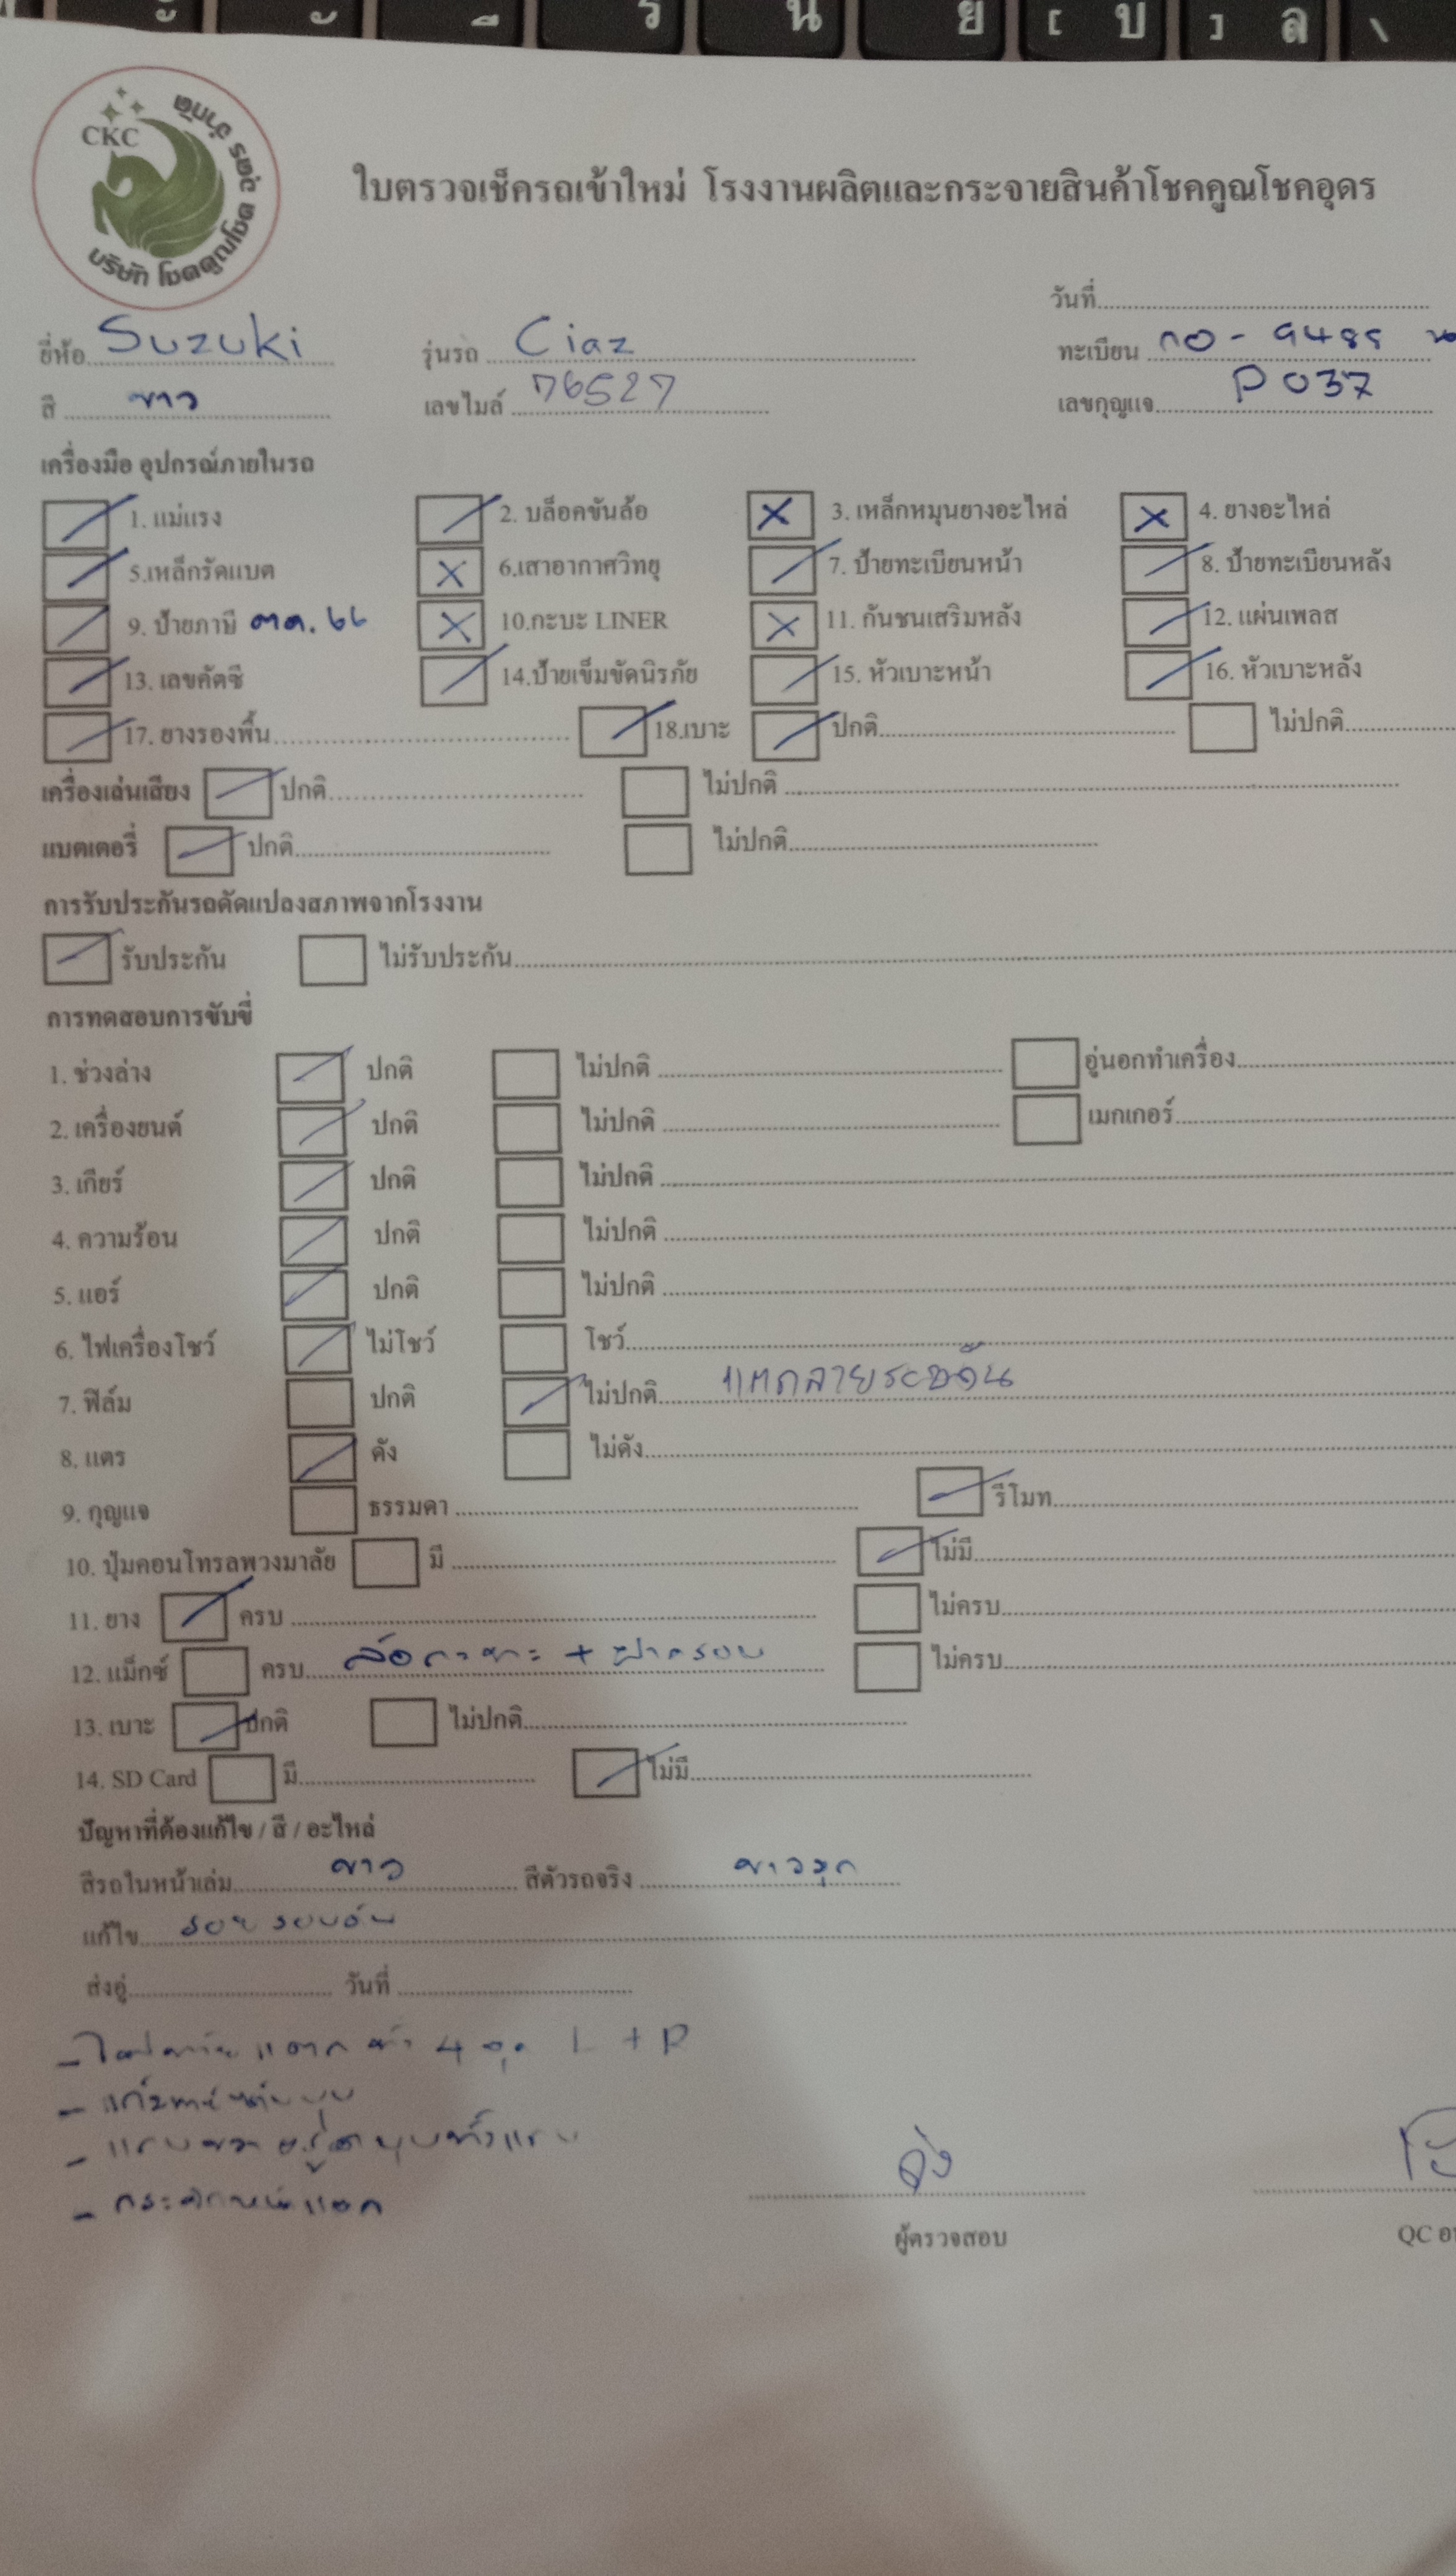 CKC
บริษัท โชคคูณโชค อุดร จำกัด
ใบตรวจเช็ครถเข้าใหม่ โรงงานผลิตและกระจายสินค้าโชคคูณโชคอุดร
วันที่
ยี่ห้อ Suzuki รุ่นรถ Ciaz ทะเบียน กอ - 9485
สี ขาว เลขไมล์ 76527 เลขกุญแจ P 037
เครื่องมือ อุปกรณ์ภายในรถ
1. แม่แรง 2. บล็อคขันล้อ 3. เหล็กหมุนยางอะไหล่ 4. ยางอะไหล่
5.เหล็กรัดแบต 6.เสาอากาศวิทยุ 7. ป้ายทะเบียนหน้า 8. ป้ายทะเบียนหลัง
9. ป้ายภาษี ตค. 66 10.กะบะ LINER 11. กันชนเสริมหลัง 12. แผ่นเพลส
13. เลขคัตซี 14.ป้ายเข็มขัดนิรภัย 15. หัวเบาะหน้า 16. หัวเบาะหลัง
17. ยางรองพื้น 18.เบาะ ปกติ ไม่ปกติ
เครื่องเล่นเสียง ปกติ ไม่ปกติ
แบตเตอรี่ ปกติ ไม่ปกติ
การรับประกันรถดัดแปลงสภาพจากโรงงาน
รับประกัน ไม่รับประกัน
การทดสอบการขับขี่
1. ช่วงล่าง ปกติ ไม่ปกติ อู่นอกทำเครื่อง
2. เครื่องยนต์ ปกติ ไม่ปกติ เมกเกอร์
3. เกียร์ ปกติ ไม่ปกติ
4. ความร้อน ปกติ ไม่ปกติ
5. แอร์ ปกติ ไม่ปกติ
6. ไฟเครื่องโชว์ ไม่โชว์ โชว์
7. ฟิล์ม ปกติ ไม่ปกติ แตกลาย
8. แตร ดัง ไม่ดัง
9. กุญแจ ธรรมดา รีโมท
10. ปุ่มคอนโทรลพวงมาลัย มี ไม่มี
11. ยาง ครบ ไม่ครบ
12. แม็กซ์ ครบ ล้อกะทะ + ฝาครอบ ไม่ครบ
13. เบาะ ปกติ ไม่ปกติ
14. SD Card มี ไม่มี
ปัญหาที่ต้องแก้ไข / สี / อะไหล่
สีรถในหน้าเล่ม ขาว สีตัวรถจริง ขาวมุก
แก้ไข รอยรอบคัน
ส่งอู่ วันที่
4 จุด L + R
ผู้ตรวจสอบ QC